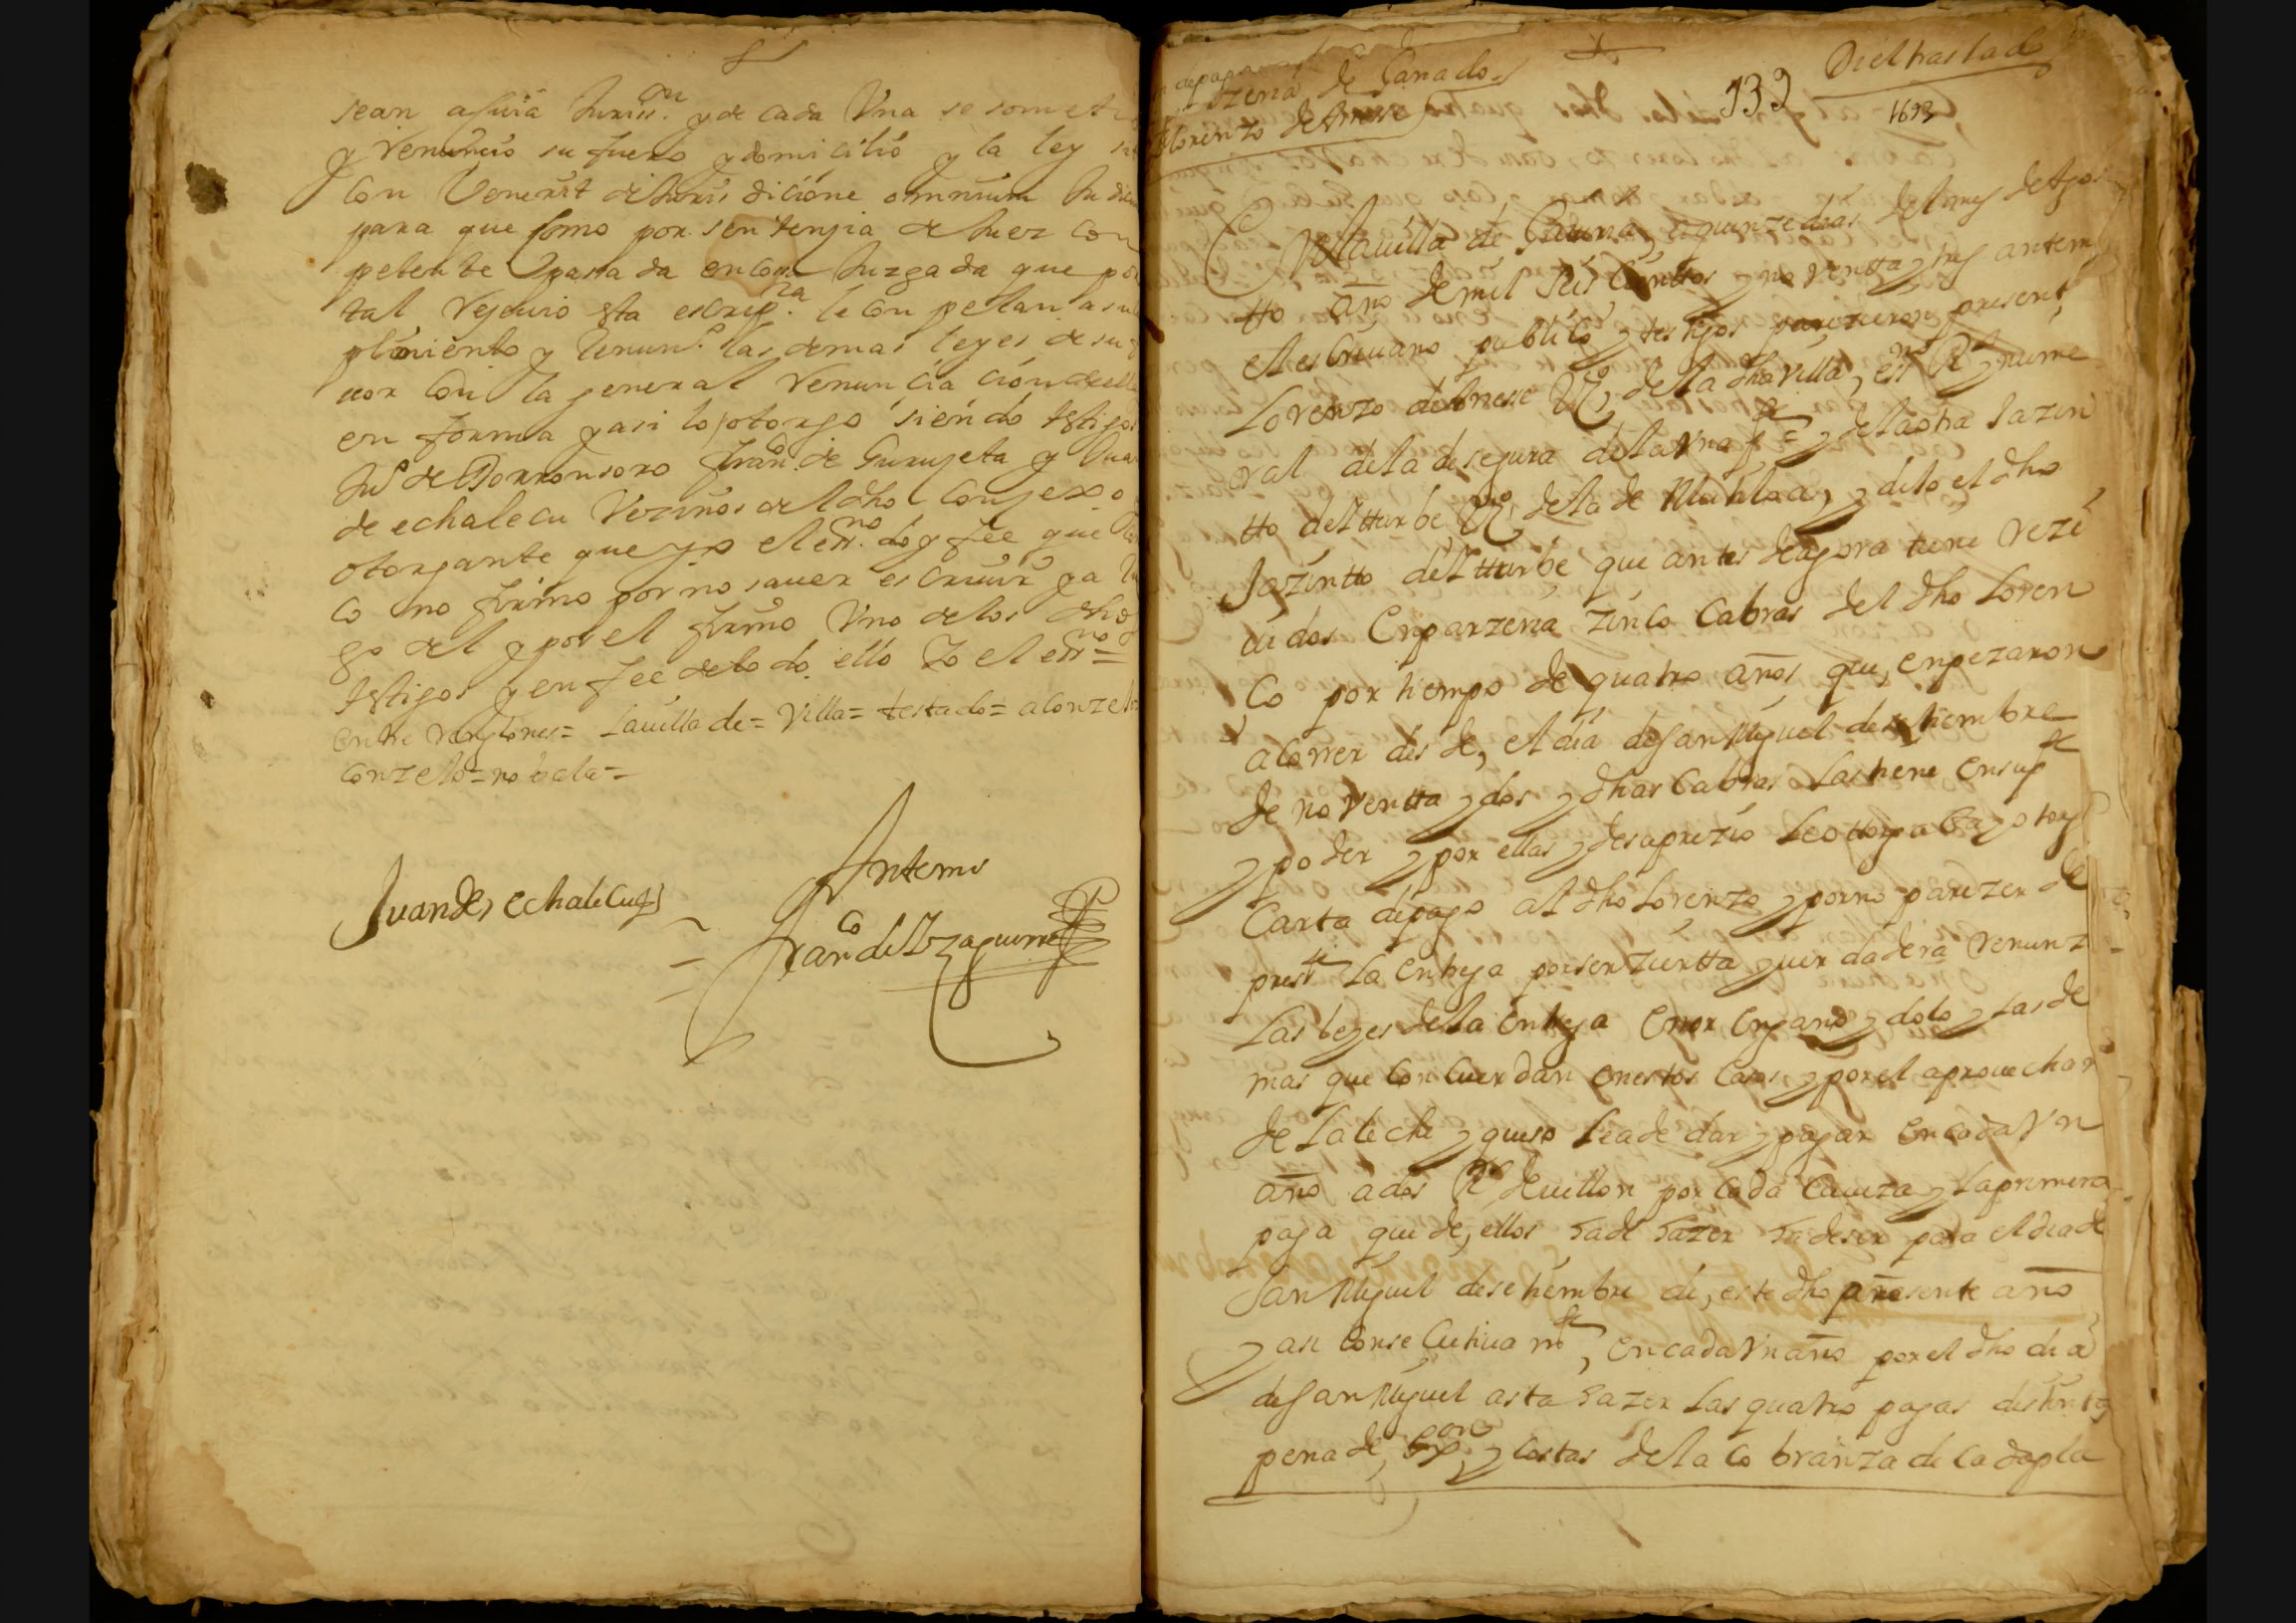 sean a cuia Juriss.on y de cada Vna se somet
y Renuncio su fuero y domicilio y la ley
con Venerit de Jurisdicione omnium Judic
para que como por sentenzia de Juez con
petente pasada en cosa Juzgada que por
tal resciuio esta escrip.ra le conpelan a su
plimiento y Renun.o las demas leyes de su
uor con la general Renunciacion de ella
en forma y asi lo otorgo siendo testigos
Ju.o de Borronsoro fran.co de Gurujeta y Jua
de echalecu Vezinos del dho Conzexo
otorgante que yo el ess.no doy fee que
co no firmo por no sauer escriuir y a
go del y por el firmo Vno de los dhos
testigos y en fee de todo ello Yo el ess.no =
entre Renglones= La uilla de= Villa= testado= a conzelo
conzelo= no bala=
Juan de echalecu
Antemi
Fran.co de Yzaguirre
zeria de Ganados
Lorenzo de
139
Di el traslado
1693
En la uilla de Gauiria, a quinze dias del mes de Agos
tto año de mil seis Cienttos y noventta y tres antem
el escriuano publico y testigos parezieron present
Lorenzo de V.o de la dha villa, ess.no R.l y nume
ral de la de segura de la vna p.te = y de la otra Jazin
tto de Itturbe V.o de la de Mutiloa, y dijo el dho
Jazintto de Itturbe que antes de agora tiene rezi
uidos En parzeria zinco Cabras del dho Loren
Co por tiempo de quatro años que, enpezaron
a Correr des de, el dia de San Miguel de setiembre
de noventta y dos y dhas Cabras Las tiene en su p.te
y poder y por ellas y des aprezio Le ottorga
Carta de pago al dho Lorenzo y por no parezer de
press.te La entrega por ser zierta y uerdadera renunz
Las leyes de la entrega error engano y dolo y las de
mas que Concuerdan en estos Casos, y por el aprouechar
de la leche y queso Lea de dar y pagar en cada Vn
año a dos R.s de uellon por Cada Caueza y la primera
paga que de, ellos ha de hazer ha de ser para el dia de
San Miguel de setiembre de, este dho presente año
y asi Consecutiuam.te, en cada Vn año por el dho dia
de San Miguel asta hazer Las quatro pagas
pena de, y costas de la cobranza de Cada pla